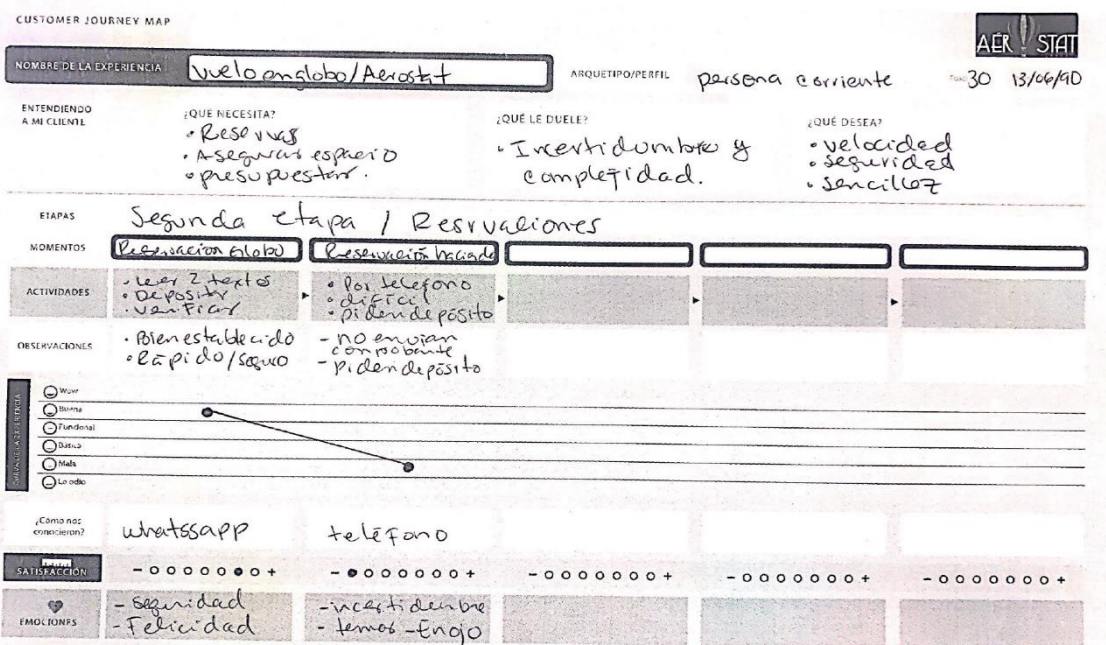 CUSTOMER JOURNEY MAP
AÉR STAT
NOMBRE DE LA EXPERIENCIA
Vuelo en globo/Aerostat
ARQUETIPO/PERFIL
persona corriente
30 13/06/90
ENTENDIENDO
A MI CLIENTE
¿QUÉ NECESITA?
• Reservas
• Asegurar espacio
• presupuestar.
¿QUÉ LE DUELE?
• Incertidumbre y
complejidad.
¿QUÉ DESEA?
• velocidad
• seguridad
• sencillez
ETAPAS
Segunda etapa / Resrvaciones
MOMENTOS
Reservación Globo
Reservación hacienda
ACTIVIDADES
• Leer 2 textos
• Depositar
• Verificar
• Por teléfono
• dificil
• piden depósito
OBSERVACIONES
• Bien establecido
• Rápido/seguro
- no envian
comprobante
- piden depósito
CURVA DE LA EXPERIENCIA
Wow
Buena
Funcional
Básica
Mala
Lo odio
¿Cómo nos
conocieron?
whatssapp
teléfono
SATISFACCIÓN
- +
- +
- +
- +
- +
EMOCIONES
- seguridad
- Felicidad
- incertidumbre
- temor - Enojo